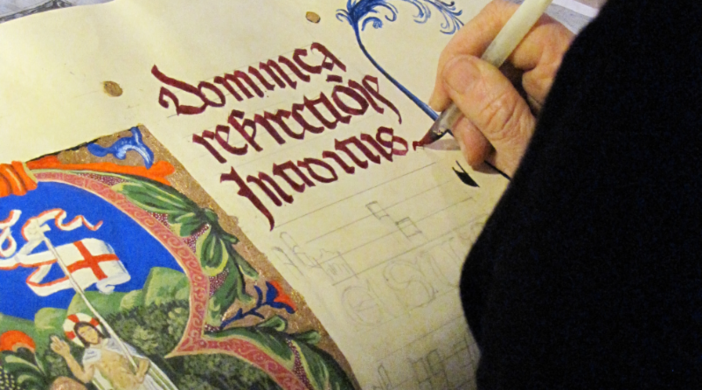 Dominica
resurrectiōis
Introitus